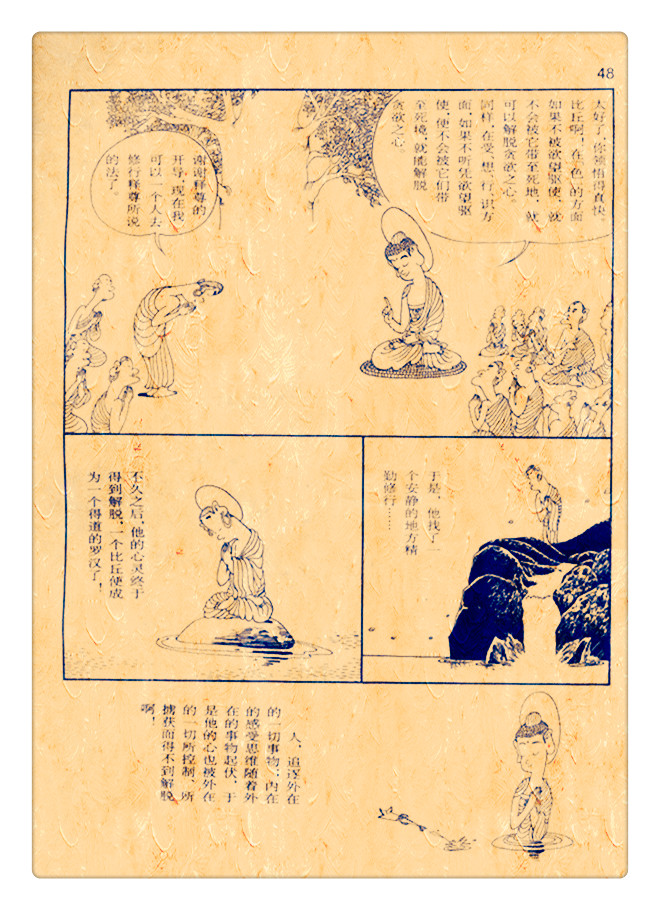 48
太好了,你领悟得真快。
比丘啊!在「色」的方面
如果不被欲望驱使,就
不会被它带至死地,就
可以解脱贪欲之心。
同样,在受、想、行、识方
面,如果不听凭欲望驱
使,便不会被它们带
至死境,就能解脱
贪欲之心。
谢谢释尊的
开导,现在我
可以一个人去
修行释尊所说
的法了。
于是,他找了一
个安静的地方精
勤修行……
不久之后,他的心灵终于
得到解脱,一个比丘便成
为一个得道的罗汉了!
人,追逐外在
的一切事物,内在
的感受思维随着外
在的事物起伏,于
是他的心也被外在
的一切所控制,所
掳获而得不到解脱
啊!